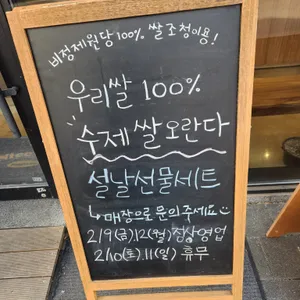 비정제원당 100% 쌀조청이용!
우리쌀 100%
수제 쌀오란다
설날선물세트
↳ 매장으로 문의 주세요
2/9(금), 12(월) 정상영업
2/10(토), 11(일) 휴무